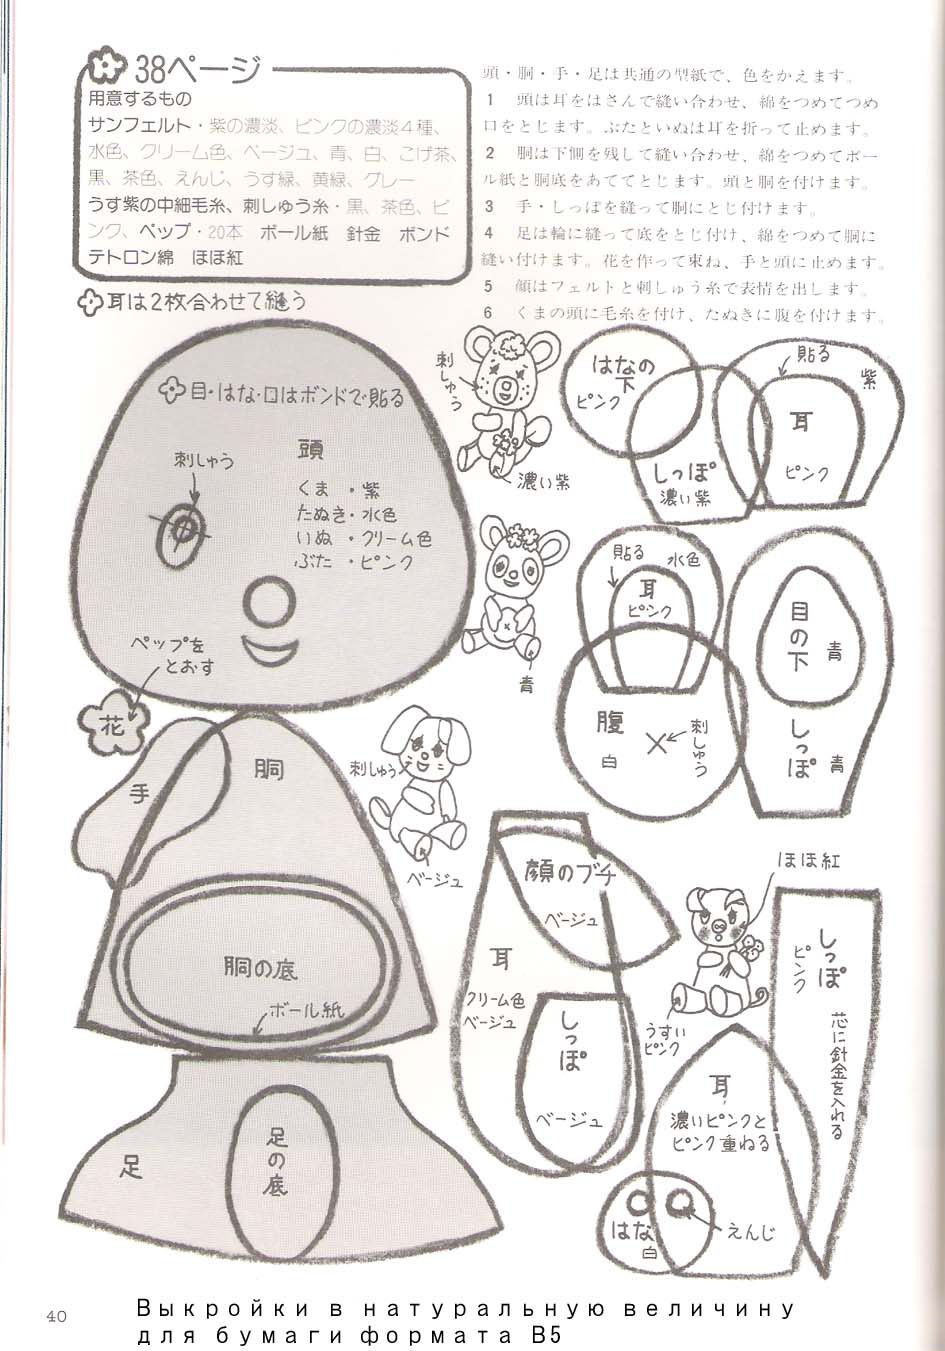 38ページ
用意するもの
サンフェルト・紫の濃淡、ピンクの濃淡4種、
水色、クリーム色、ベージュ、青、白、こげ茶、
黒、茶色、えんじ、うす緑、黄緑、グレー
うす紫の中細毛糸、刺しゅう糸・黒、茶色、ピ
ンク、ペップ・20本　ボール紙　針金　ボンド
テトロン綿　ほほ紅
頭・胴・手・足は共通の型紙で、色をかえます。
1　頭は耳をはさんで縫い合わせ、綿をつめてつめ
口をとじます。ぶたといぬは耳を折って止めます。
2　胴は下側を残して縫い合わせ、綿をつめてボー
ル紙と胴底をあててとじます。頭と胴を付けます。
3　手・しっぽを縫って胴にとじ付けます。
4　足は輪に縫って底をとじ付け、綿をつめて胴に
縫い付けます。花を作って束ね、手と頭に止めます。
5　顔はフェルトと刺しゅう糸で表情を出します。
6　くまの頭に毛糸を付け、たぬきに腹を付けます。
耳は2枚合わせて縫う
目・はな・口はボンドで貼る
刺しゅう
頭
くま・紫
たぬき・水色
いぬ・クリーム色
ぶた・ピンク
刺しゅう
濃い紫
はなの
下
ピンク
しっぽ
濃い紫
貼る
紫
耳
ピンク
青
貼る
水色
耳
ピンク
目の下
青
しっぽ
青
腹
白
刺しゅう
ペップを
とおす
花
手
胴
刺しゅう
ベージュ
胴の底
ボール紙
足
足の底
顔のブチ
ベージュ
耳
クリーム色
ベージュ
しっぽ
ベージュ
ほほ紅
うすい
ピンク
しっぽ
ピンク
芯に針金を入れる
耳
濃いピンクと
ピンク重ねる
はな
白
えんじ
40
Выкройки в натуральную величину
для бумаги формата B5